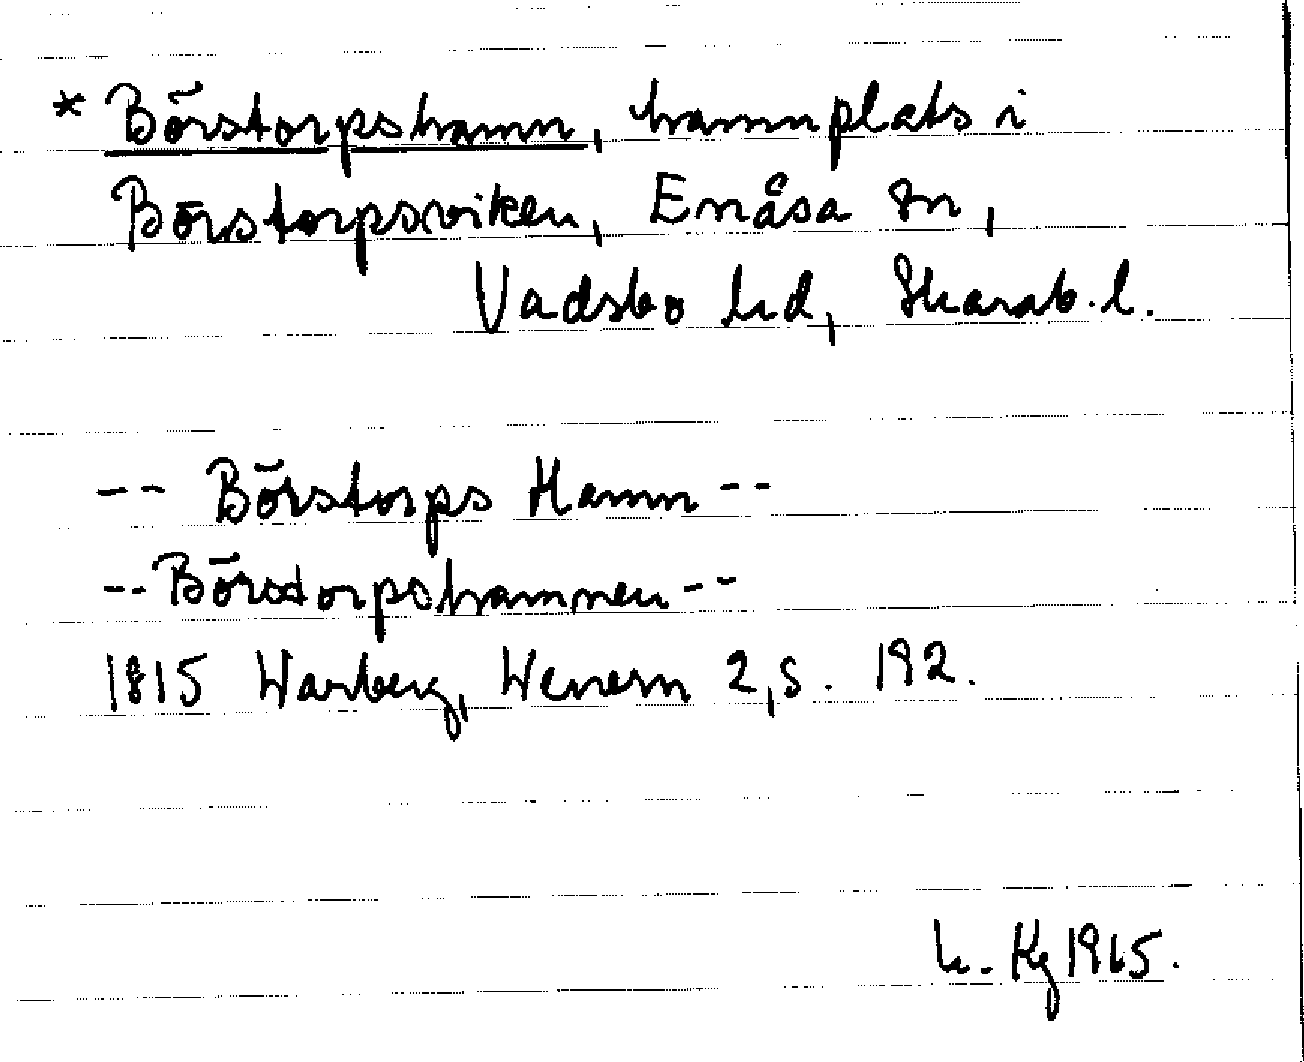 * Börstorpshamn, hamnplats i
Börstorpsviken, Enåsa sn,
Vadsbo hd, Skarab. l.
-- Börstorps Hamn --
-- Börstorpshamnen --
1815 Warberg, Wenern 2, s. 192.
h. Kg 1965.